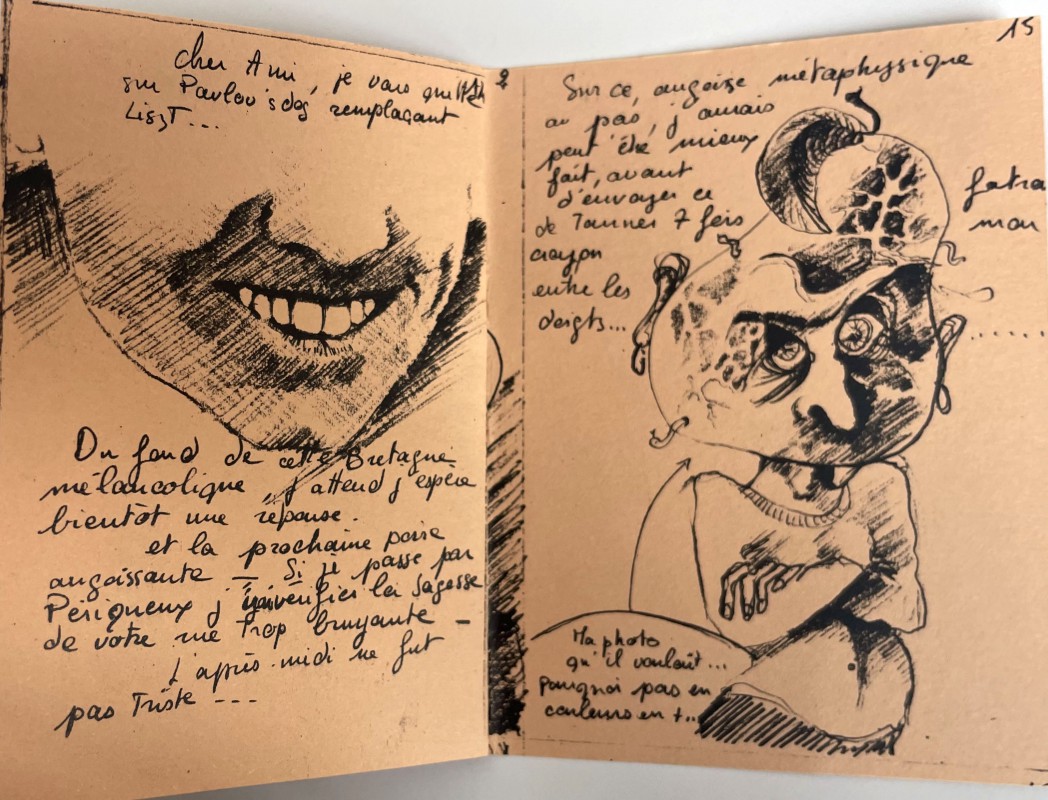 cher Ami, je vais quitter
sur Pavlov's dog remplaçant
LiszT...
Du fond de cette Bretagne
mélancolique, j'attend j'espère
bientôt une réponse.
et la prochaine poisie
angoissante — Si je passe par
Périgueux j' vérifier la sagesse
de votre rue Trop bruyante —
L'après-midi ne fut
pas Triste ---
15
Sur ce, angoisse métaphysique
ou pas, j'aurais
peut être mieux
fait, avant
d'envoyer ce
de Tourner 7 fois
crayon
entre les
doigts...
fatra
mon
......
Ma photo
qu'il voulait...
Pourquoi pas en
couleurs en +...